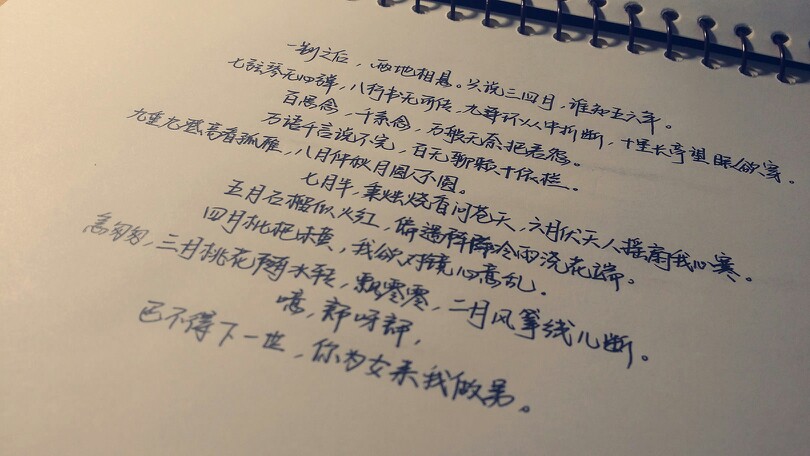 一别之后，两地相悬。只说三四月，谁知五六年。
七弦琴无心弹，八行书无可传，九连环从中折断，十里长亭望眼欲穿。
百思念，千系念，万般无奈把君怨。
万语千言说不完，百无聊赖十依栏。
九重九登高看孤雁，八月仲秋月圆人不圆。
七月半，秉烛烧香问苍天，六月伏天人摇扇我心寒。
五月石榴似火红，偏遇阵阵冷雨浇花端。
四月枇杷未黄，我欲对镜心意乱.
急匆匆，三月桃花随水转，飘零零，二月风筝线儿断。
噫，郎呀郎，
巴不得下一世，你为女来我做男。